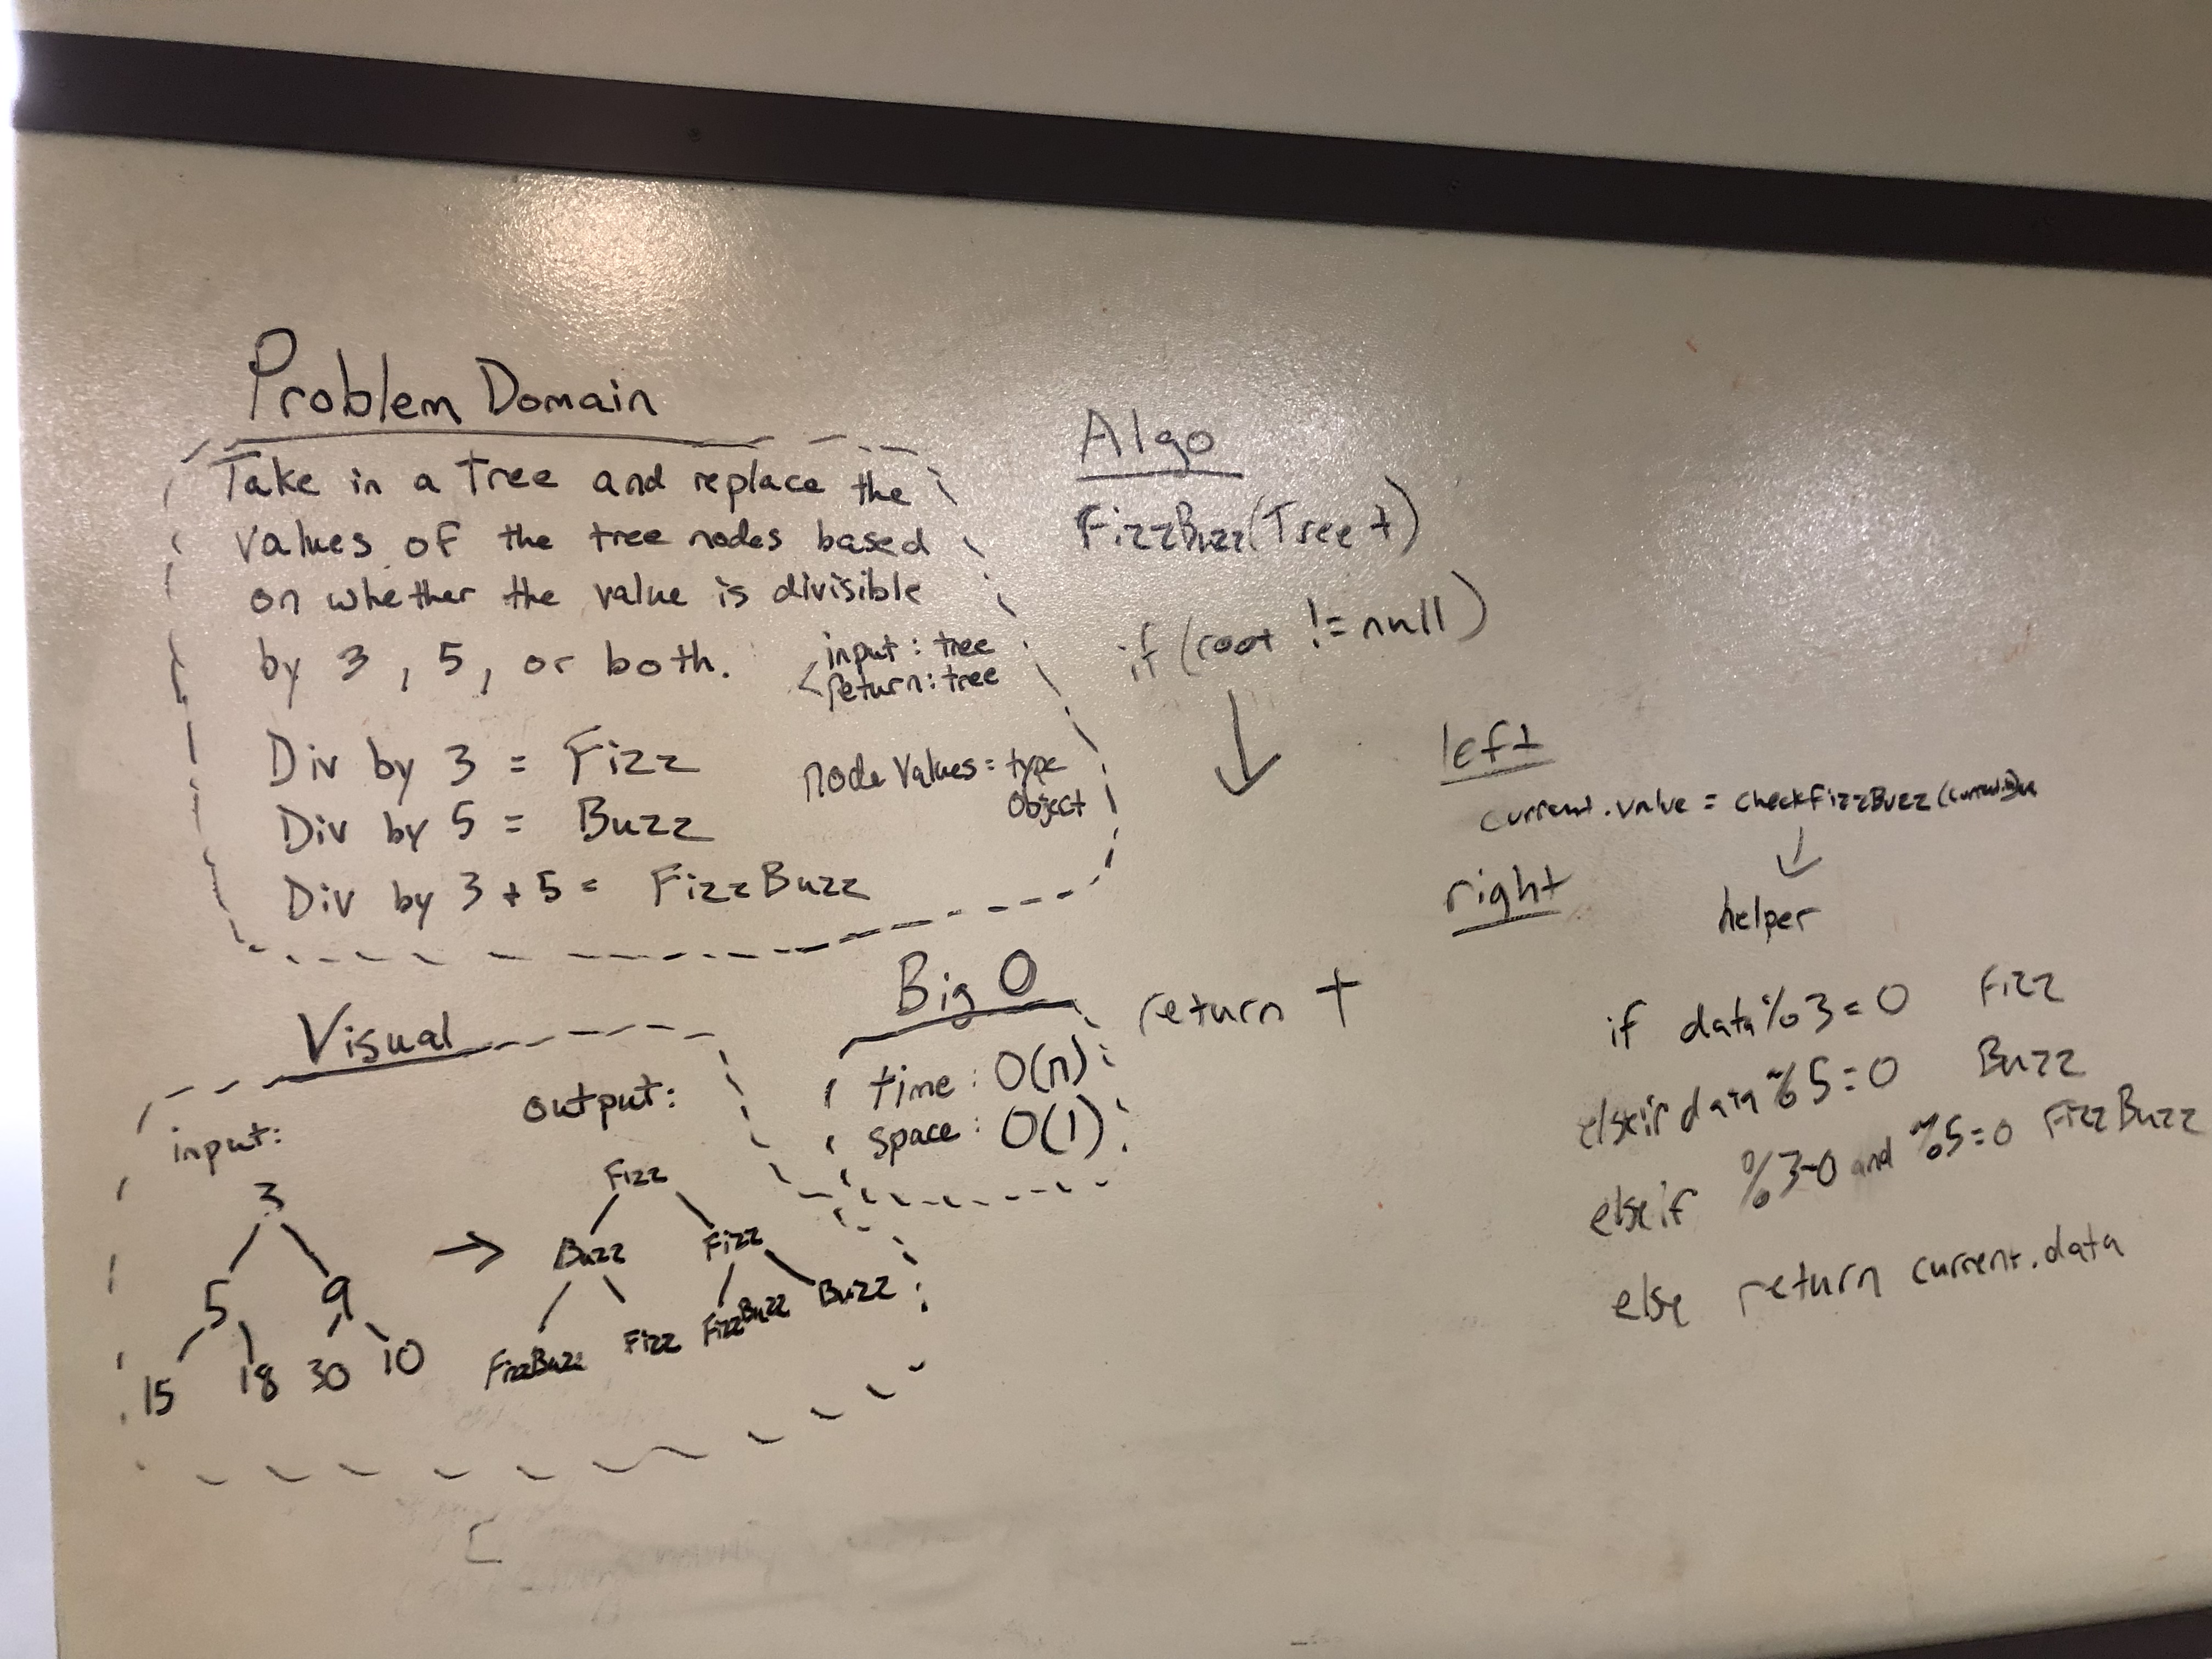 Problem Domain
Take in a Tree and replace the
values of the tree nodes based
on whether the value is divisible
by 3, 5, or both.
input: tree
return: tree
Div by 3 = Fizz
Div by 5 = Buzz
Div by 3 + 5 = FizzBuzz
Node Values = type
Object
Visual
input:
3
5 9
15 18 30 10
→
output:
Fizz
Buzz Fizz
FizzBuzz Fizz FizzBuzz Buzz
Big O
time: O(n)
space: O(1)
Algo
FizzBuzz(Tree t)
if (root != null)
left
current.value = checkFizzBuzz(
right
helper
return t
if data%3=0 Fizz
elseif data%5=0 Buzz
elseif %3=0 and %5=0 FizzBuzz
else return current.data